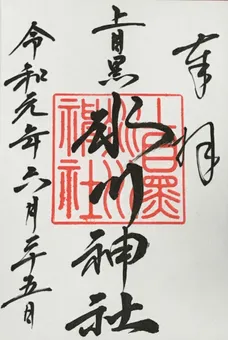 奉拝
上目黒
氷川神社
令和元年六月二十五日
上目黒
氷川
神社